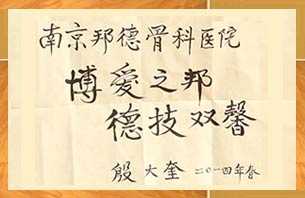 南京邦德骨科医院
博爱之邦
德技双馨
殷大奎 二〇一四年春